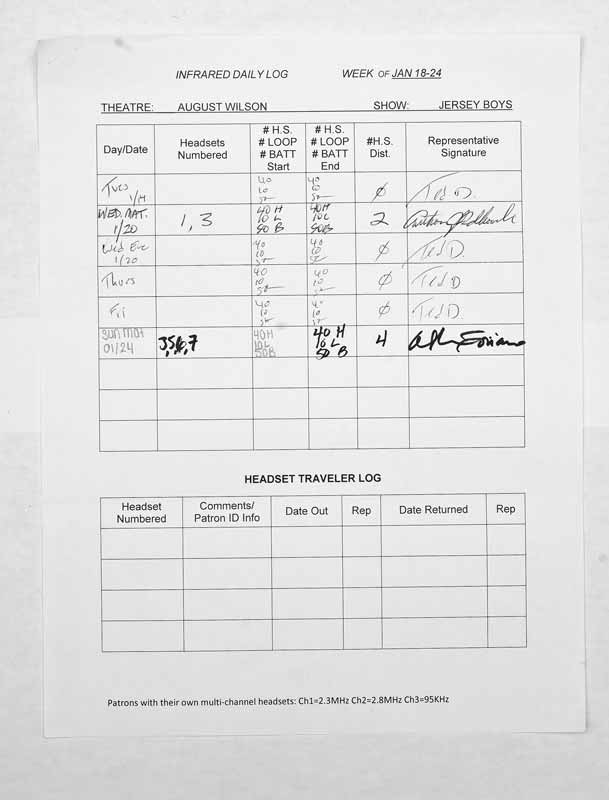 INFRARED DAILY LOG WEEK OF JAN 18-24
THEATRE: AUGUST WILSON SHOW: JERSEY BOYS
Day/Date Headsets Numbered # H.S. # LOOP # BATT Start # H.S. # LOOP # BATT End #H.S. Dist. Representative Signature
Tues 40 10 50 40 10 50 ∅ Ted D.
WED. MAT. 1/20 1, 3 40 H 10 L 50 B 40H 10L 50B 2
Wed Eve 1/20 40 10 50 40 10 50 ∅ Ted D.
Thurs 40 10 50 40 10 50 ∅ Ted D
Fri 40 10 50 40 10 50 ∅ Ted D.
SUN MAT 01/24 3,5,6,7 40H 10L 50B 40 H 10 L 50 B 4
HEADSET TRAVELER LOG
Headset Numbered Comments/ Patron ID Info Date Out Rep Date Returned Rep
Patrons with their own multi-channel headsets: Ch1=2.3MHz Ch2=2.8MHz Ch3=95KHz